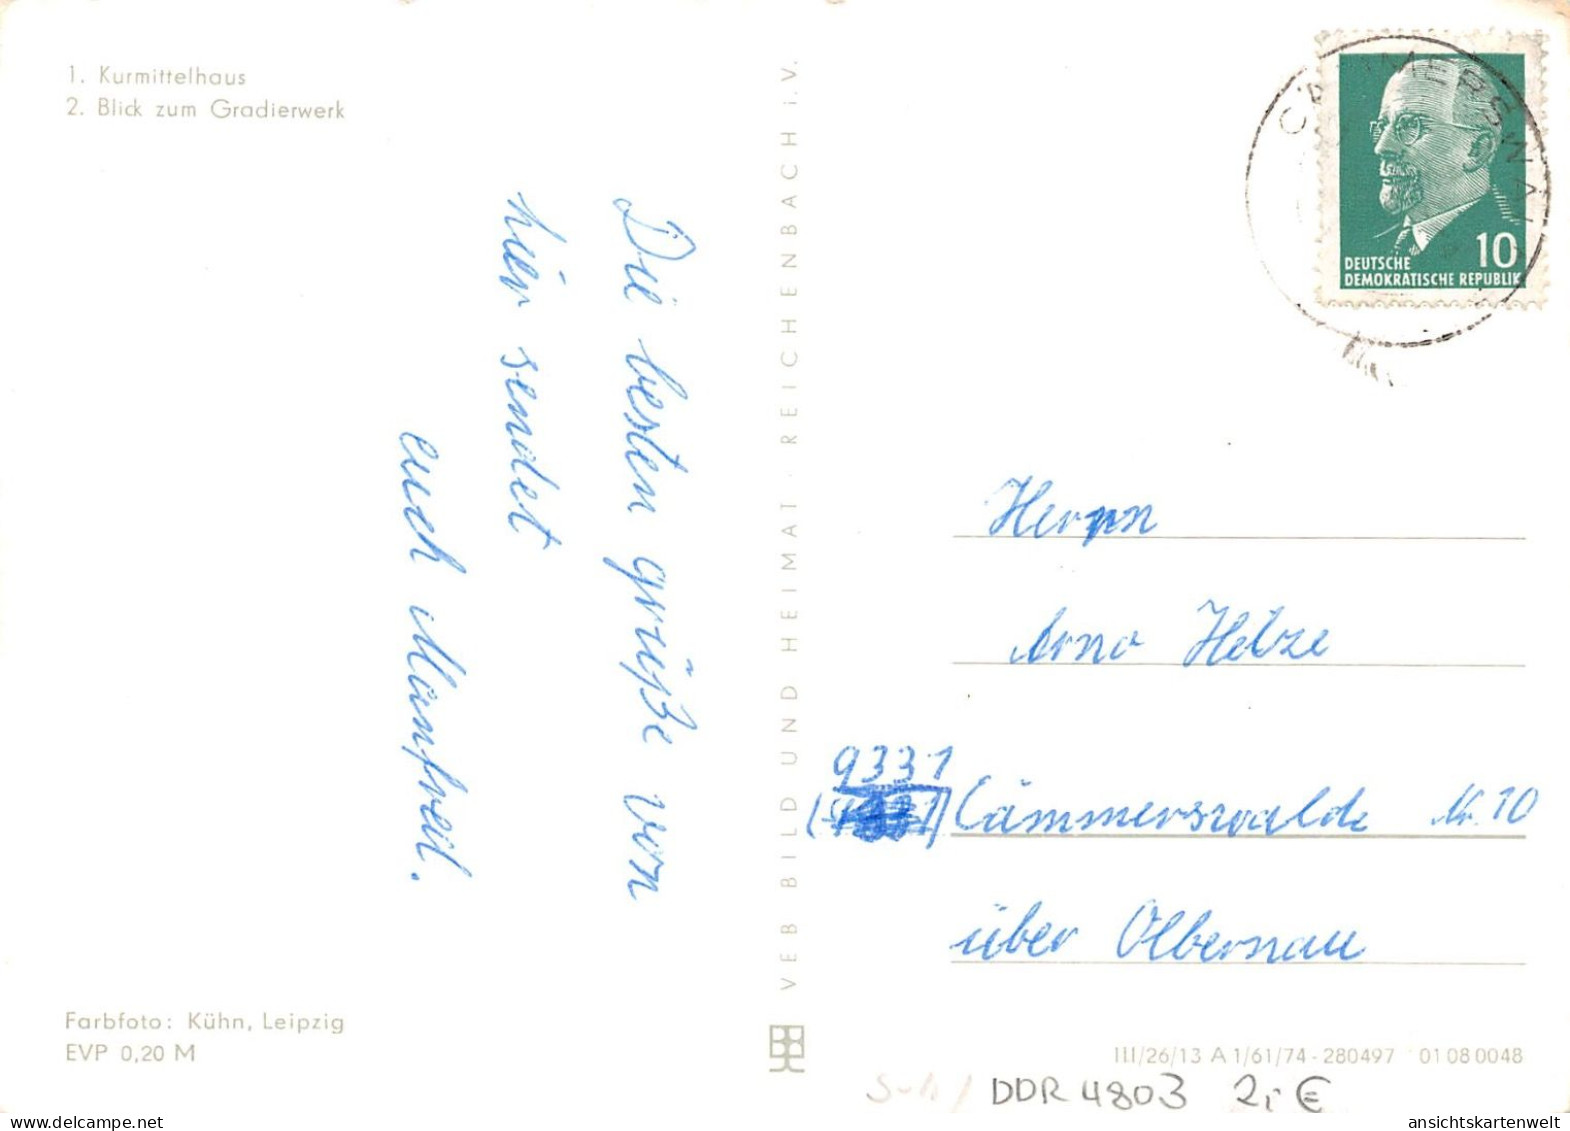 1. Kurmittelhaus
2. Blick zum Gradierwerk
Die besten grüße von
hier sendet
euch Manfred.
Farbfoto: Kühn, Leipzig
EVP 0,20 M
VEB BILD UND HEIMAT REICHENBACH i.V.
CÄMMERSWAL
10
DEUTSCHE
DEMOKRATISCHE REPUBLIK
Herrn
Arno Helze
9331
Cämmerswalde Nr. 10
über Olbernau
III/26/13 A 1/61/74 - 280497 01 08 0048
DDR 4803 2,- €
ansichtskartenwelt